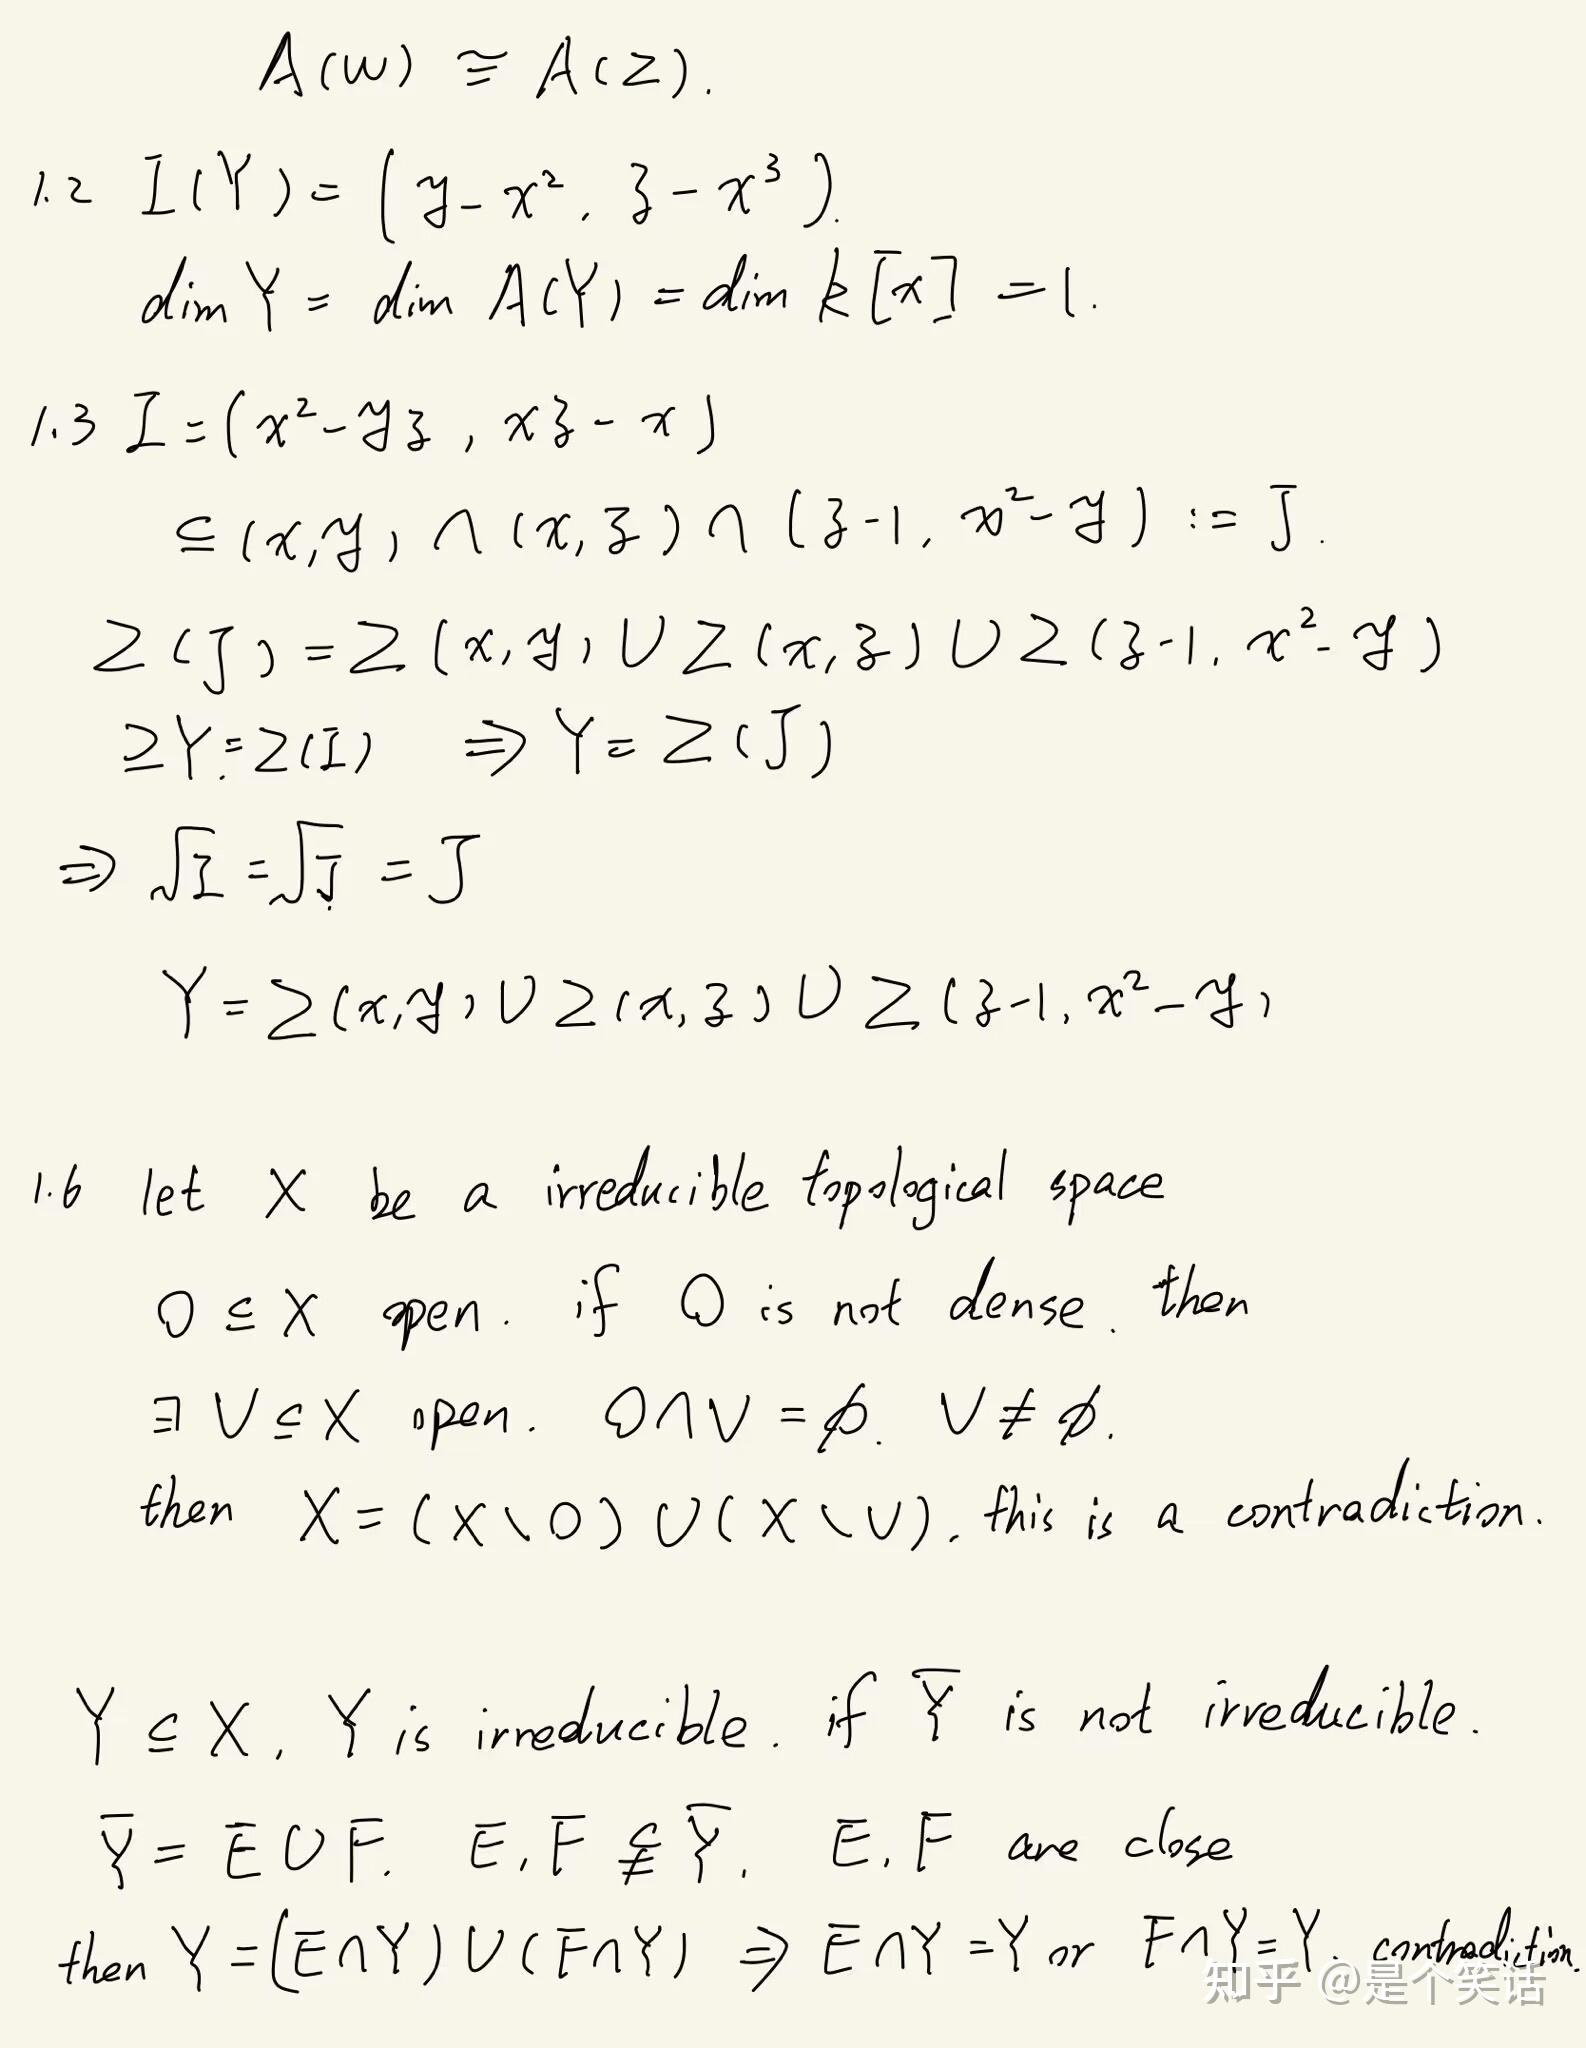 A(W) ≅ A(Z).
1.2 I(Y) = (y - x², z - x³).
dim Y = dim A(Y) = dim k[x] = 1.
1.3 I = (x² - yz, xz - x)
⊆ (x,y) ∩ (x,z) ∩ (z-1, x² - y) := J.
Z(J) = Z(x,y) ∪ Z(x,z) ∪ Z(z-1, x² - y)
≥ Y = Z(I) ⇒ Y = Z(J)
⇒ √I = √J = J
Y = Z(x,y) ∪ Z(x,z) ∪ Z(z-1, x² - y)
1.6 let X be a irreducible topological space
O ⊆ X open. if O is not dense. then
∃ U ⊆ X open. O ∩ U = ∅. U ≠ ∅.
then X = (X \ O) ∪ (X \ U). this is a contradiction.
Y ⊆ X, Y is irreducible. if Y̅ is not irreducible.
Y̅ = E ∪ F. E, F ⊊ Y̅. E, F are close
then Y = (E ∩ Y) ∪ (F ∩ Y) ⇒ E ∩ Y = Y or F ∩ Y = Y. contradiction.
知乎 @是个笑话